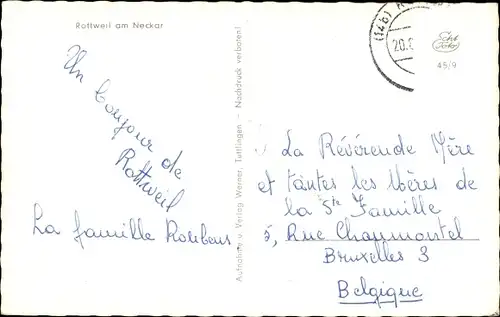 Rottweil am Neckar
Un bonjour de
Rottweil
La famille Roubens
Aufnahme u. Verlag Werner, Tuttlingen - Nachdruck verboten!
(14b)
20.
Echt
Foto
45/9
La Révérende Mère
et toutes les Mères de
la Ste Famille
5, Rue Chaumontel
Bruxelles 3
Belgique